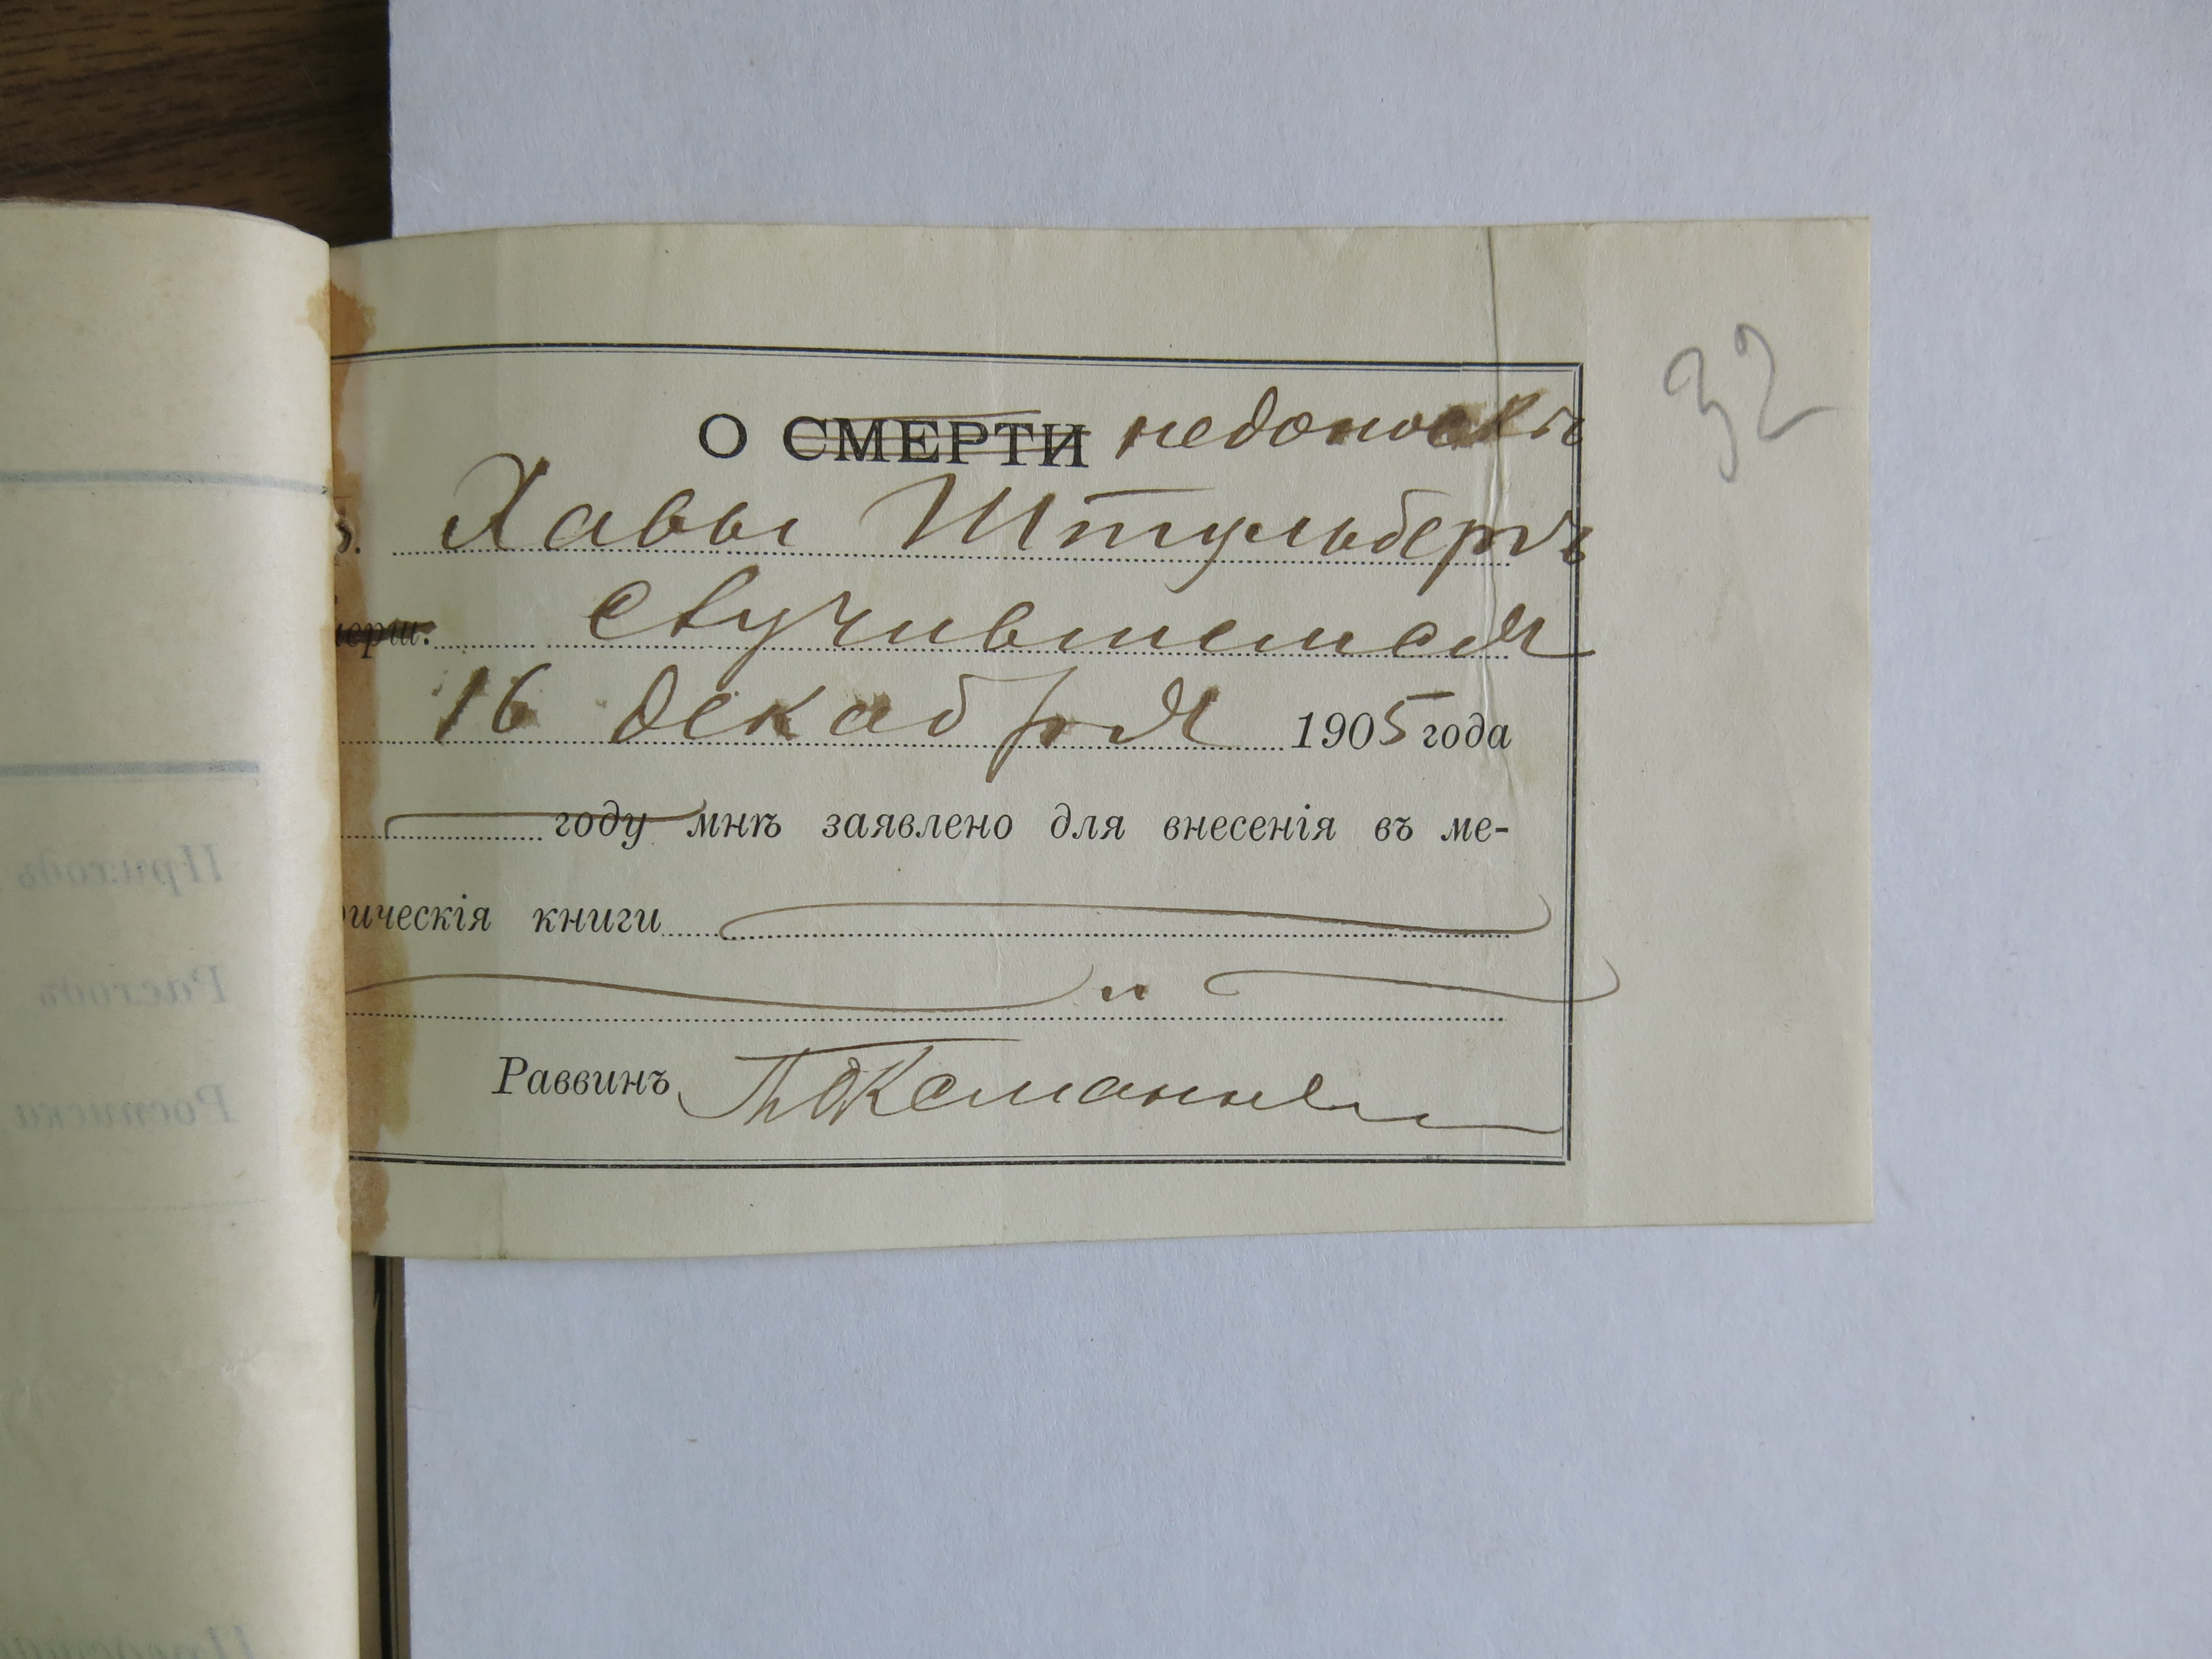 32
О СМЕРТИ недоноскѣ
Хавы Штульбергъ
мерш. случившемся
16 декабря 1905 года
году мнѣ заявлено для внесенія въ ме-
рическія книги
и
Раввинъ
Приходъ
Расходъ
Росписки